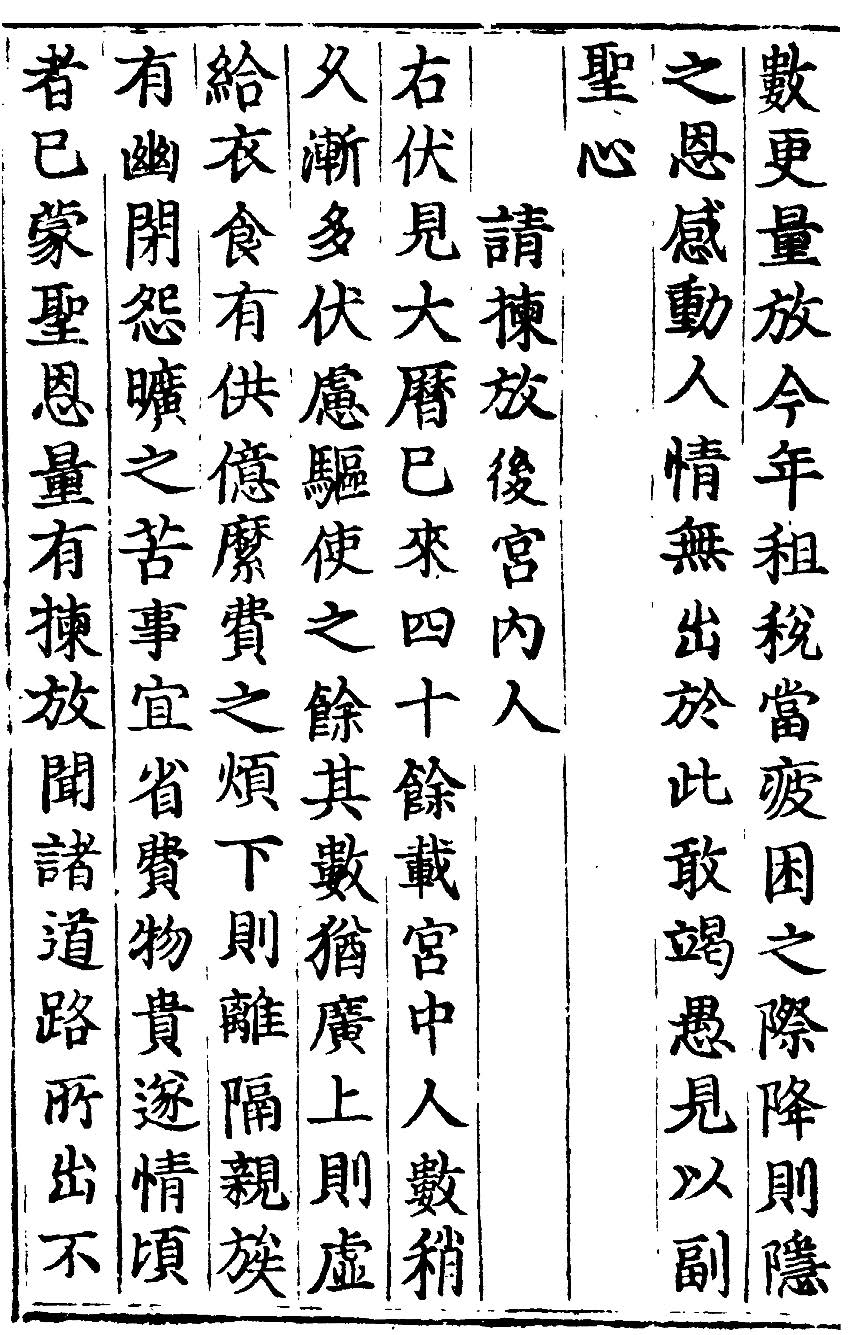 數更量放今年租稅當疲困之際降則隱
之恩感動人情無出於此敢竭愚見以副
聖心
請揀放後宮內人
右伏見大曆已來四十餘載宮中人數稍
久漸多伏慮驅使之餘其數猶廣上則虛
給衣食有供億縻費之煩下則離隔親族
有幽閉怨曠之苦事宜省費物貴遂情頃
者已蒙聖恩量有揀放聞諸道路所出不